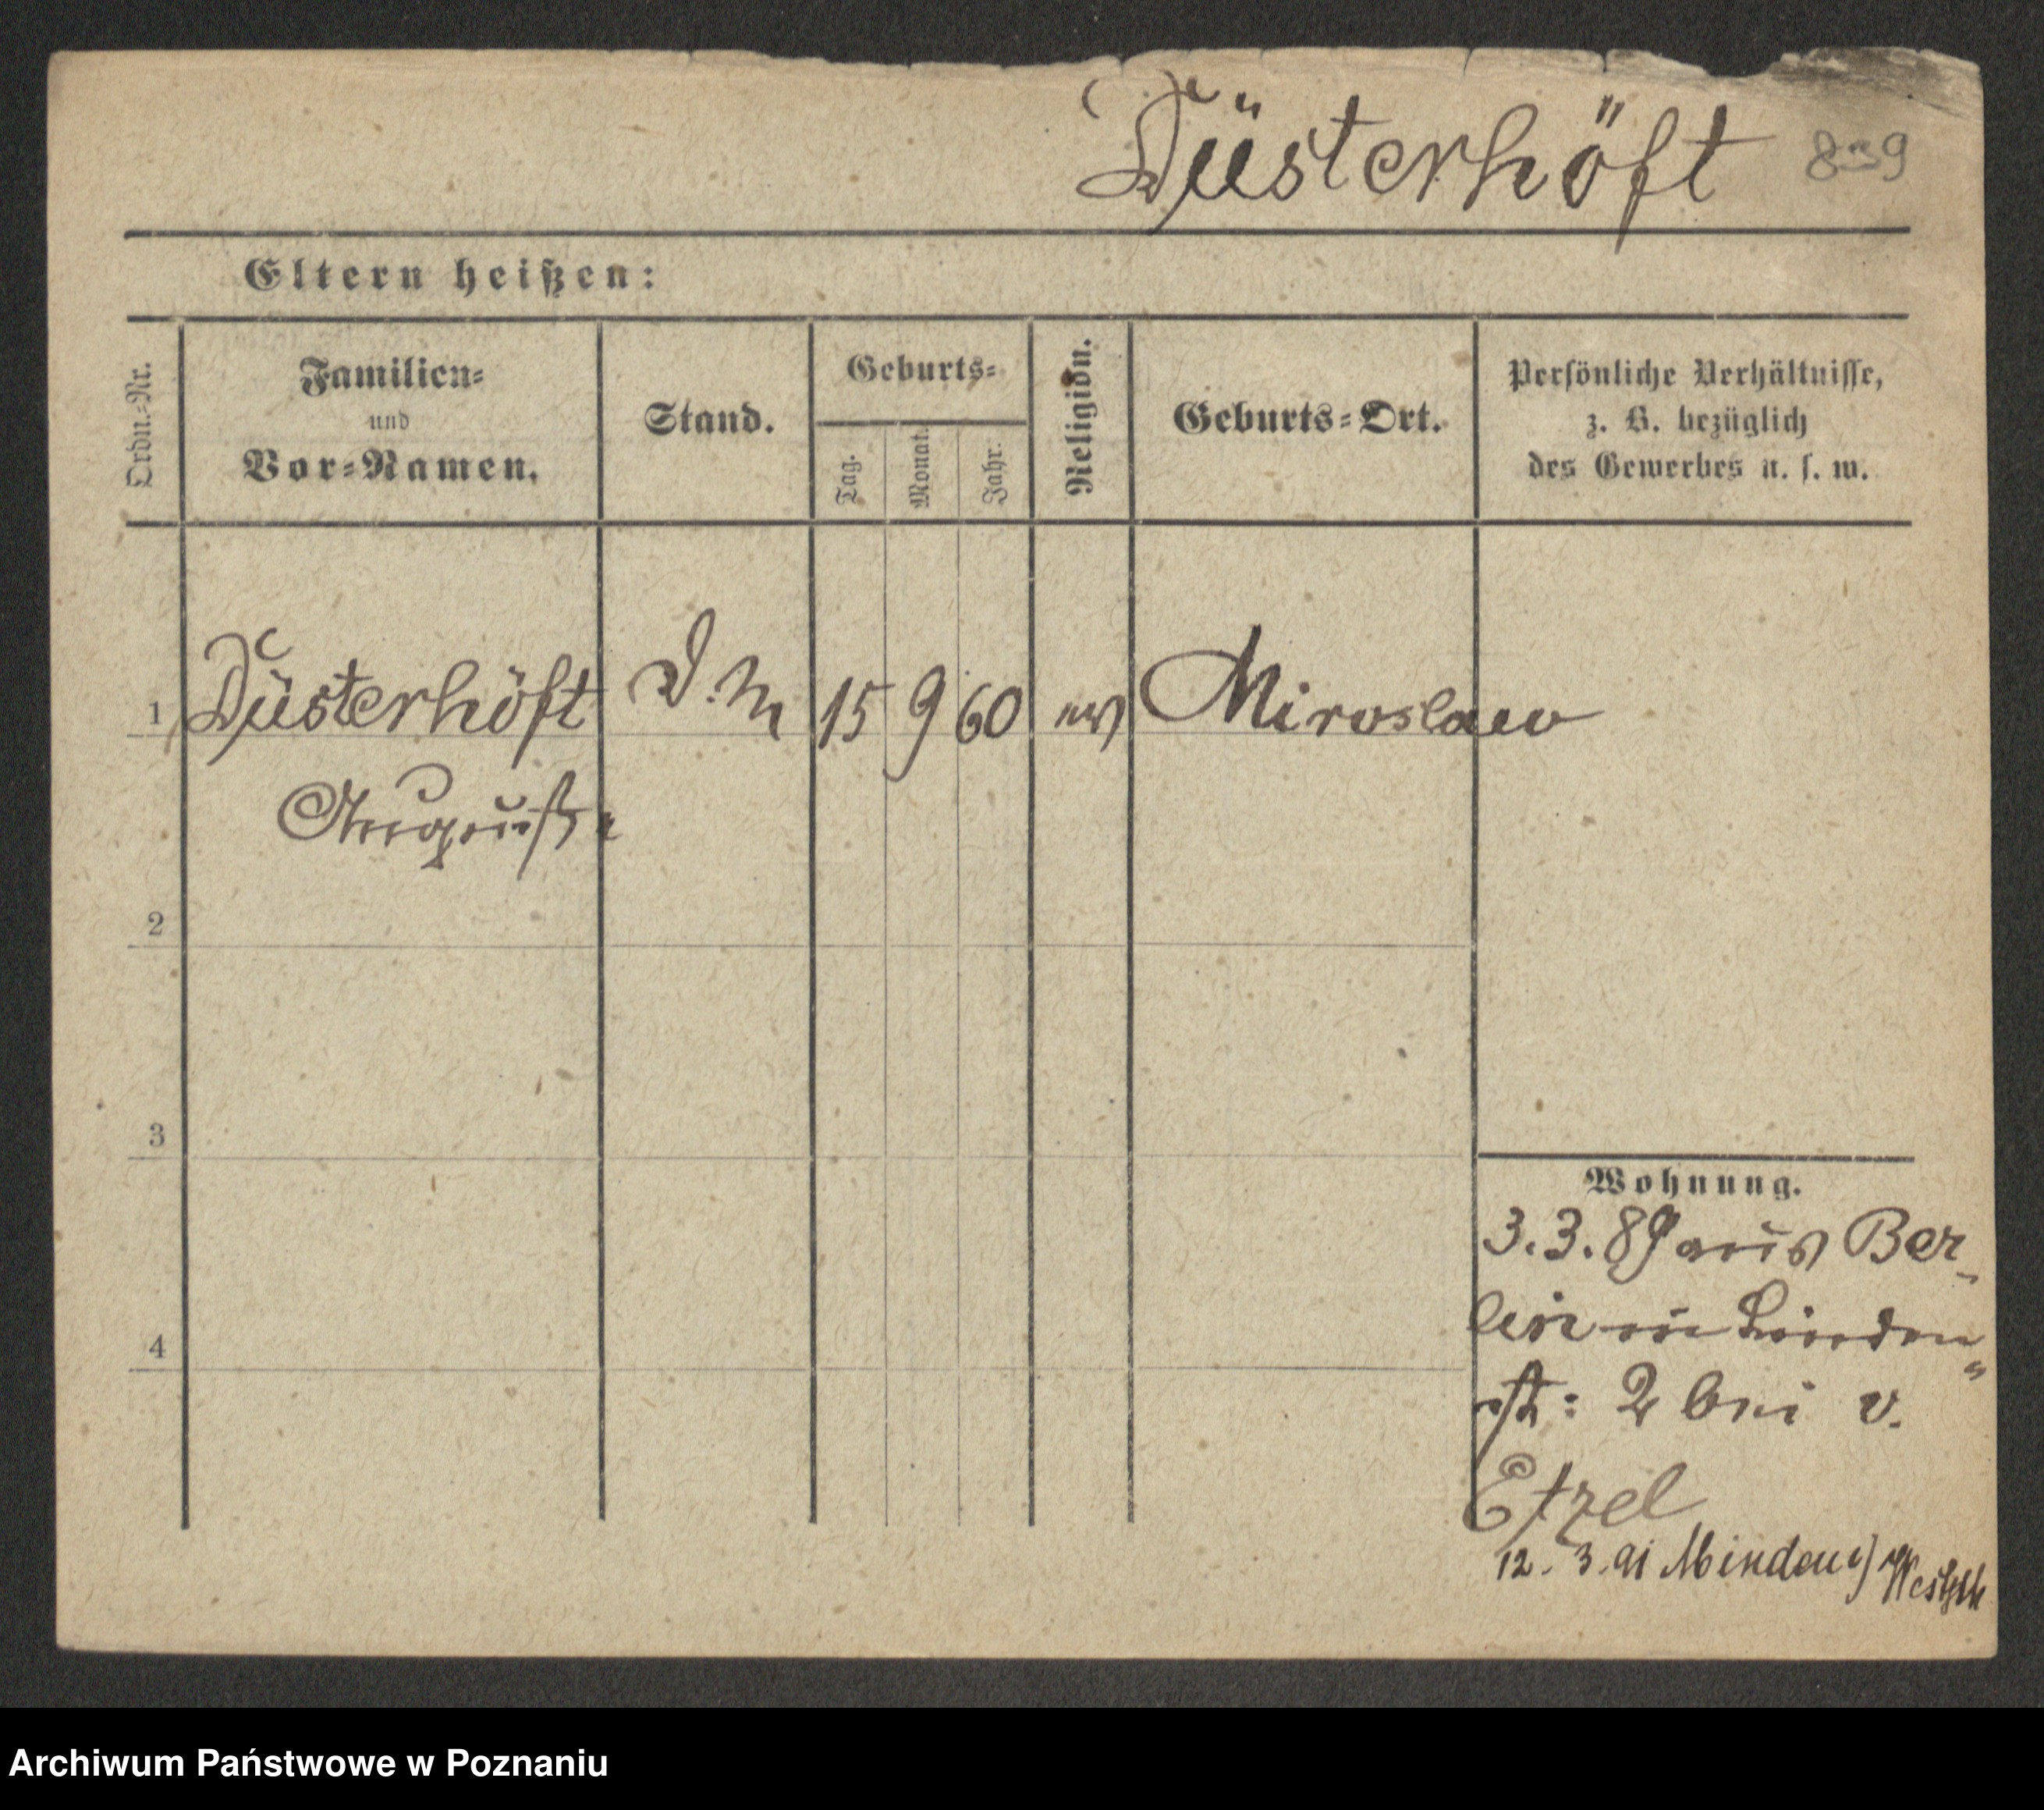 Düsterhöft
Eltern heißen:
Ordn.-Nr.
Familien-
und
Vor-Namen.
Stand.
Geburts-
Tag.
Monat.
Jahr.
Religion.
Geburts-Ort.
Persönliche Verhältnisse,
z. B. bezüglich
des Gewerbes u. s. w.
1 Düsterhöft D. M 15 9 60 ev Miroslaw
Auguste
2
3
4
Wohnung.
3.3.89 aus Ber-
lin in Linden
str: 2 bei v.
Etzel
12. 3. 91 Minden i/ Westph
Archiwum Państwowe w Poznaniu